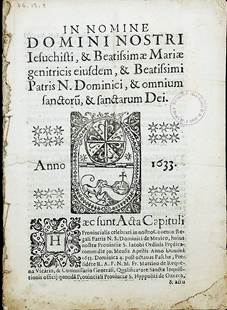 IN NOMINE
DOMINI NOSTRI
Iesuchisti, & Beatissimæ Mariæ
genitricis eiusdem, & Beatissimi
Patris N. Dominici, & omnium
sanctorũ, & sanctarum Dei.
Anno 1633.
Hæc sunt Acta Capituli
Provincialis celebrati in nostro Conventu Re-
gali Patris N. S. Dominici de Mexico, huius
nostræ Provinciæ S. Iacobi Ordinis Prædica-
die Mensis Aprilis Anno Domini
1633. Dominica 4. post octavas Paschæ, Præ-
R. A. P. N. M. Fr.
Vicario, & Commissario Generali, Qualificatore Sanctæ Inquisi-
tionis Provinciæ S. Hyppoliti de
& aliis